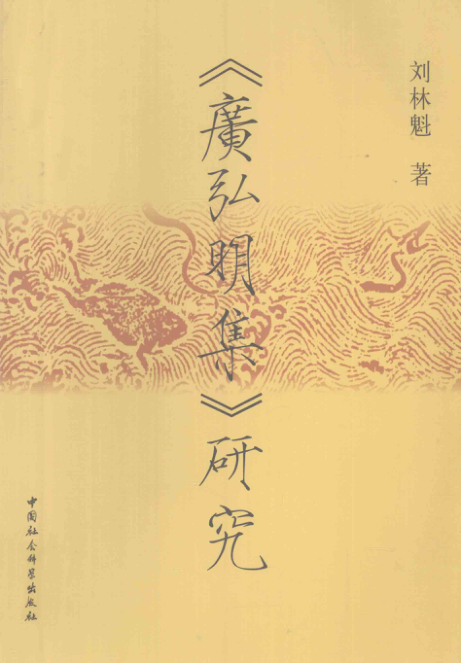 刘林魁 著
《廣弘明集》研究
中国社会科学出版社